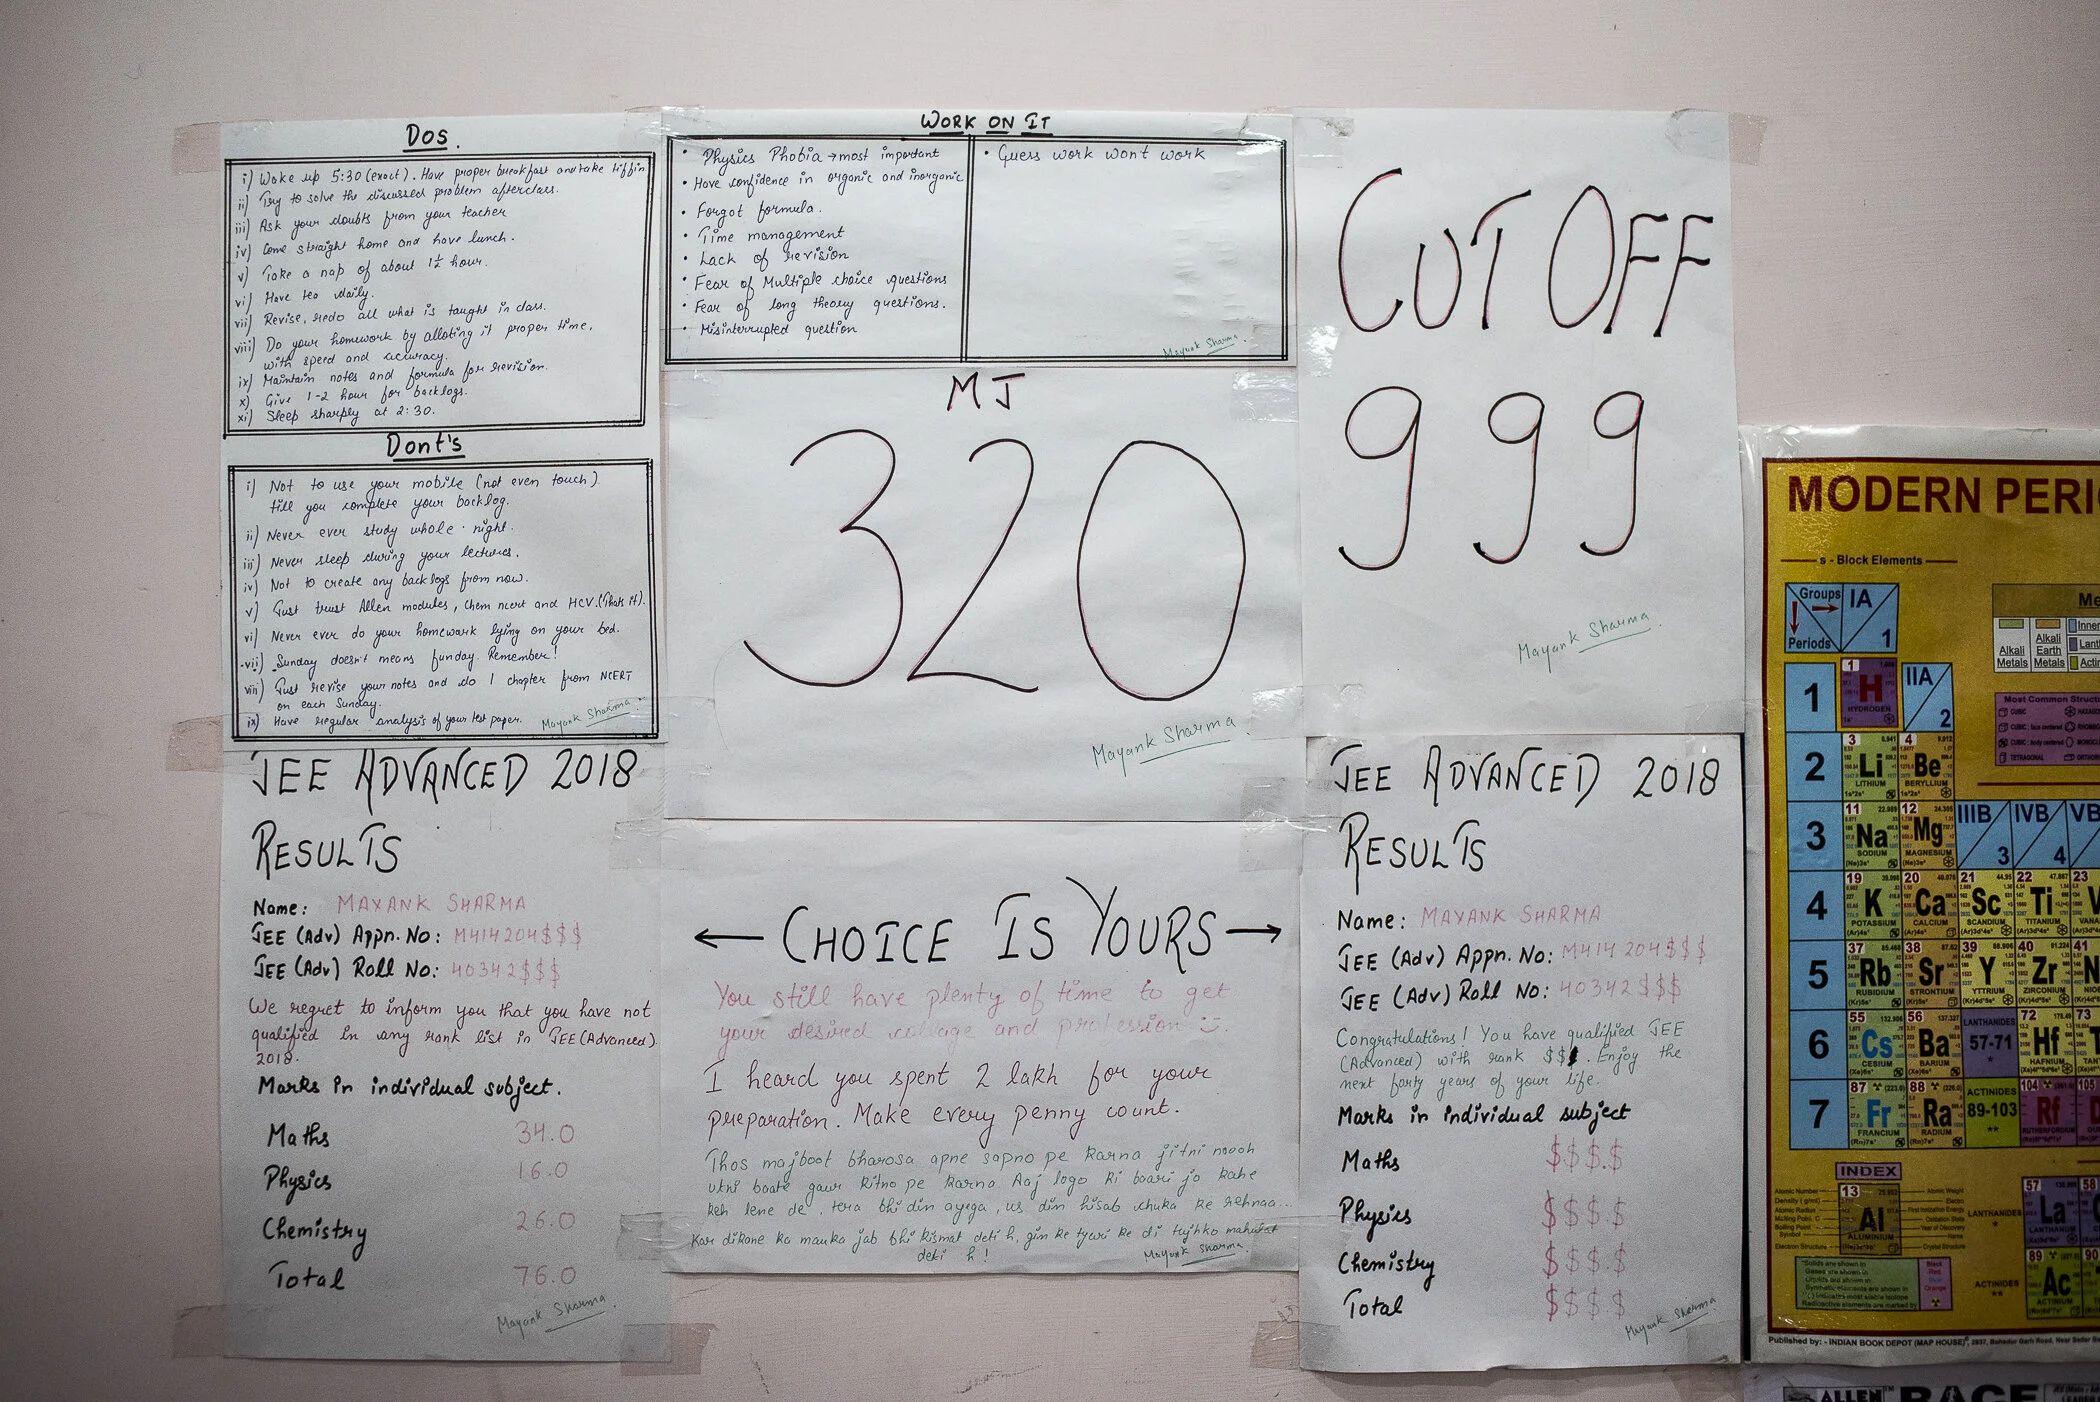 DOS.
i) Wake up 5:30 (exact). Have proper breakfast and take tiffin
ii) Try to solve the discussed problem afterclass.
iii) Ask your doubts from your teacher
iv) Come straight home and have lunch.
v) Take a nap of about 1½ hour.
vi) Have tea daily.
vii) Revise, redo all what is taught in class.
viii) Do your homework by alloting it proper time,
with speed and accuracy.
ix) Maintain notes and formula for revision.
x) Give 1-2 hour for backlogs.
xi) Sleep sharply at 2:30.
Dont's
i) Not to use your mobile (not even touch)
till you complete your backlog.
ii) Never ever study whole night.
iii) Never sleep during your lectures.
iv) Not to create any backlogs from now.
v) Just trust Allen modules, Chem ncert and HCV. (Thats it).
vi) Never ever do your homework lying on your bed.
vii) Sunday doesn't means funday. Remember!
viii) Just revise your notes and do 1 chapter from NCERT
on each Sunday.
ix) Have regular analysis of your test paper.
Mayank Sharma
WORK ON IT
• Physics Phobia → most important
• Have confidence in organic and inorganic
• Forgot formula.
• Time management
• Lack of revision
• Fear of Multiple choice questions
• Fear of long theory questions.
• Misinterrupted question
• Guess work wont work
Mayank Sharma
MJ
320
Mayank Sharma
CUT OFF
999
Mayank Sharma
JEE ADVANCED 2018
RESULTS
Name: MAYANK SHARMA
JEE (Adv) Appn. No: M414204$$$
JEE (Adv) Roll No: 40342$$$
We regret to inform you that you have not
qualified in any rank list in JEE (Advanced)
2018.
Marks in individual subject.
Maths 34.0
Physics 16.0
Chemistry 26.0
Total 76.0
Mayank Sharma
← CHOICE IS YOURS →
You still have plenty of time to get
your desired collage and profession
I heard you spent 2 lakh for your
preparation. Make every penny count.
Thos majboot bharosa apne sapno pe karna jitni mooh
utni baate gaur kitno pe karna. Aaj logo ki baari jo kahe
keh lene de, tera bhi din ayega, us din hisab chuka ke rehnaa...
Kar dikane ka mauka jab bhi kismat deti h, gin ke tyari ke di tujhko mahurat
deti h!
Mayank Sharma
JEE ADVANCED 2018
RESULTS
Name: MAYANK SHARMA
JEE (Adv) Appn. No: M414204$$$
JEE (Adv) Roll No: 40342$$$
Congratulations! You have qualified JEE
(Advanced) with rank $$. Enjoy the
next forty years of your life.
Marks in individual subject
Maths $$$.$
Physics $$$.$
Chemistry $$$.$
Total $$$.$
Mayank Sharma
MODERN PERI
s - Block Elements
Groups
Periods
IA
1
Alkali Metals
Alkali Earth Metals
Most Common Struct
1
1 H HYDROGEN
IIA
2
2
3 Li LITHIUM
4 Be BERYLLIUM
3
11 Na SODIUM
12 Mg MAGNESIUM
IIIB
3
IVB
4
VB
4
19 K POTASSIUM
20 Ca CALCIUM
21 Sc SCANDIUM
22 Ti TITANIUM
23
5
37 Rb RUBIDIUM
38 Sr STRONTIUM
39 Y YTTRIUM
40 Zr ZIRCONIUM
41
6
55 Cs CESIUM
56 Ba BARIUM
LANTHANIDES
57-71
*
72 Hf HAFNIUM
73
7
87 Fr FRANCIUM
88 Ra RADIUM
ACTINIDES
89-103
**
104 Rf RUTHERFORDIUM
105
INDEX
13 Al ALUMINIUM
LANTHANIDES
*
57 La LANTHANUM
58
ACTINIDES
**
89 Ac ACTINIUM
90
Published by: - INDIAN BOOK DEPOT (MAP HOUSE)
ALLEN
RACE